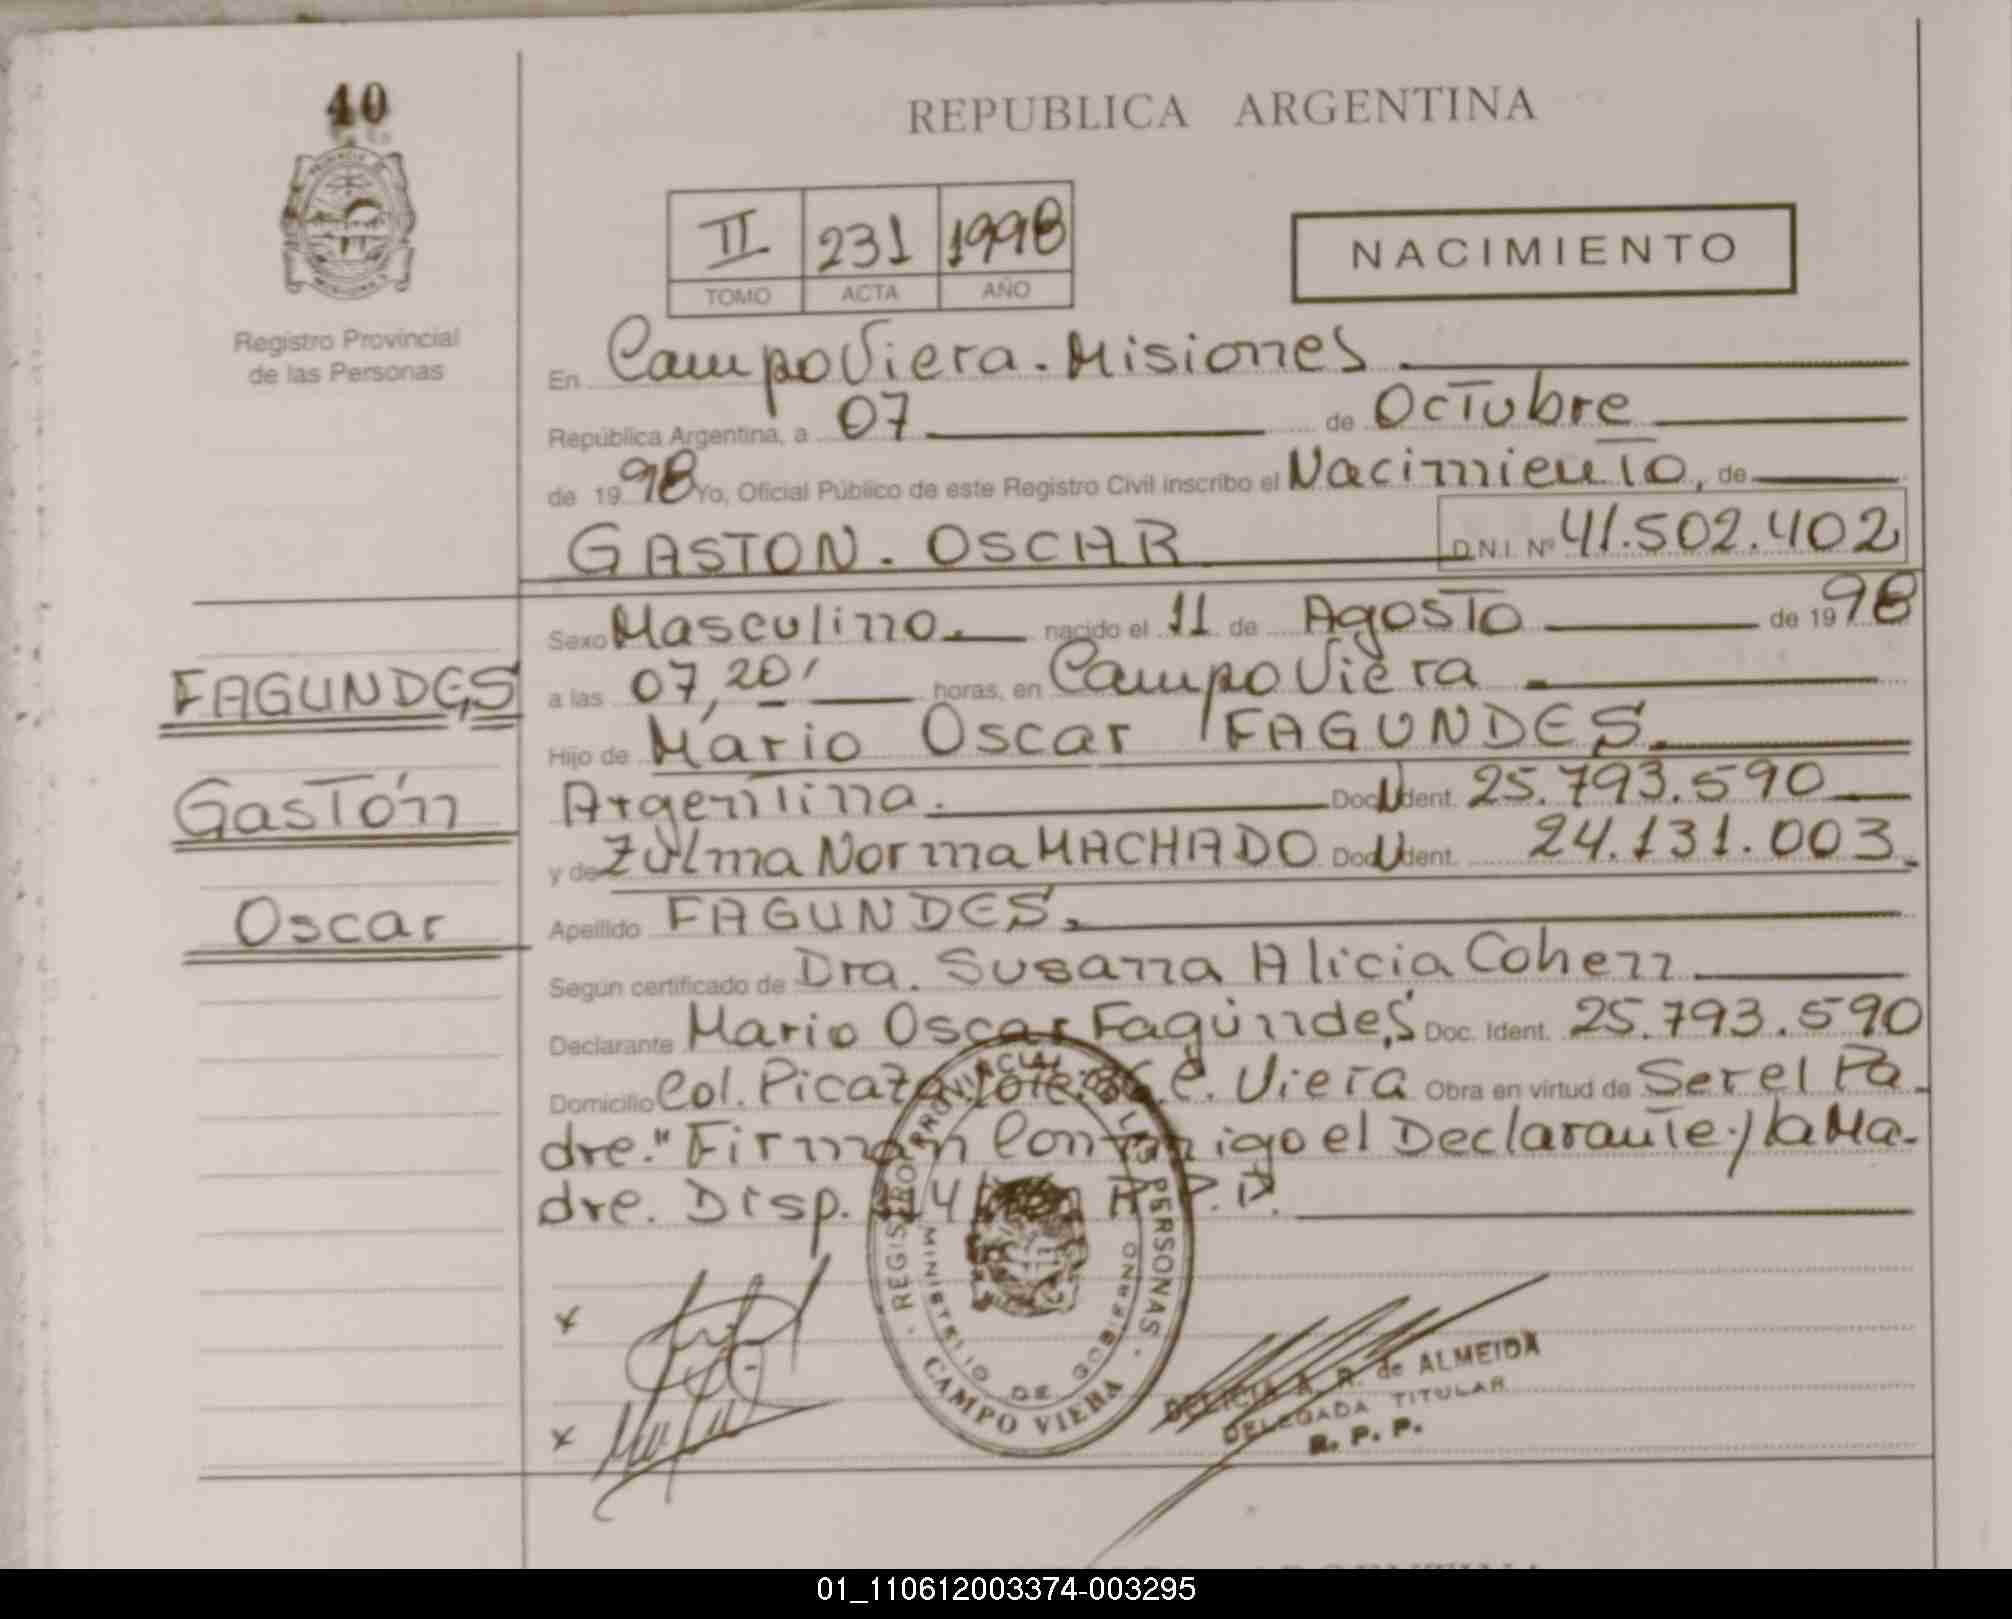 40
Registro Provincial
de las Personas
REPUBLICA ARGENTINA
II 231 1998
TOMO ACTA AÑO
NACIMIENTO
En Campo Viera. Misiones
República Argentina, a 07 de Octubre
de 1998 Yo, Oficial Público de este Registro Civil inscribo el Nacimiento, de
GASTON. OSCAR D.N.I. Nº 41.502.402
Sexo Masculino. nacido el 11 de Agosto de 1998
a las 07,20' horas, en Campo Viera
Hijo de Mario Oscar FAGUNDES.
Argentina. Doc. Ident. 25.793.590
y de Zulma Norma MACHADO Doc. Ident. 24.131.003.
Apellido FAGUNDES.
Según certificado de Dra. Susana Alicia Cohen
Declarante Mario Oscar Fagúndes Doc. Ident. 25.793.590
Domicilio Col. Picaza C. Viera Obra en virtud de Ser el Pa-
dre." Firman Conmigo el Declarante y la Ma-
dre. Disp.
FAGUNDES
Gastón
Oscar
x
x
REGISTRO PROVINCIAL DE LAS PERSONAS
MINISTERIO DE GOBIERNO
CAMPO VIERA
DELICIA A. R. de ALMEIDA
DELEGADA TITULAR
R. P. P.
01_110612003374-003295